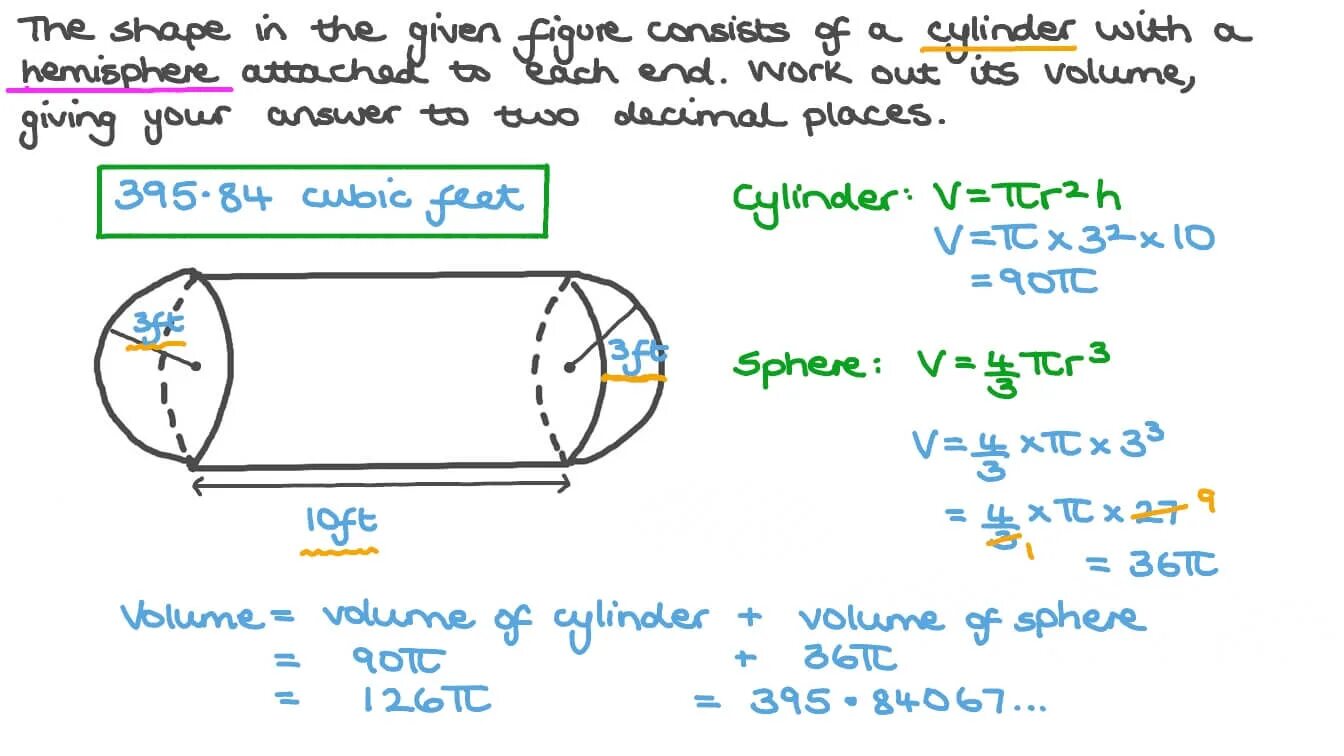 The shape in the given figure consists of a cylinder with a
hemisphere attached to each end. Work out its volume,
giving your answer to two decimal places.
395.84 cubic feet
3ft
3ft
10ft
Cylinder: V=πr²h
V=π×3²×10
=90π
Sphere: V=4/3πr³
V=4/3×π×3³
=4/3×π×27 9
1
=36π
Volume = volume of cylinder + volume of sphere
= 90π + 36π
= 126π = 395.84067...